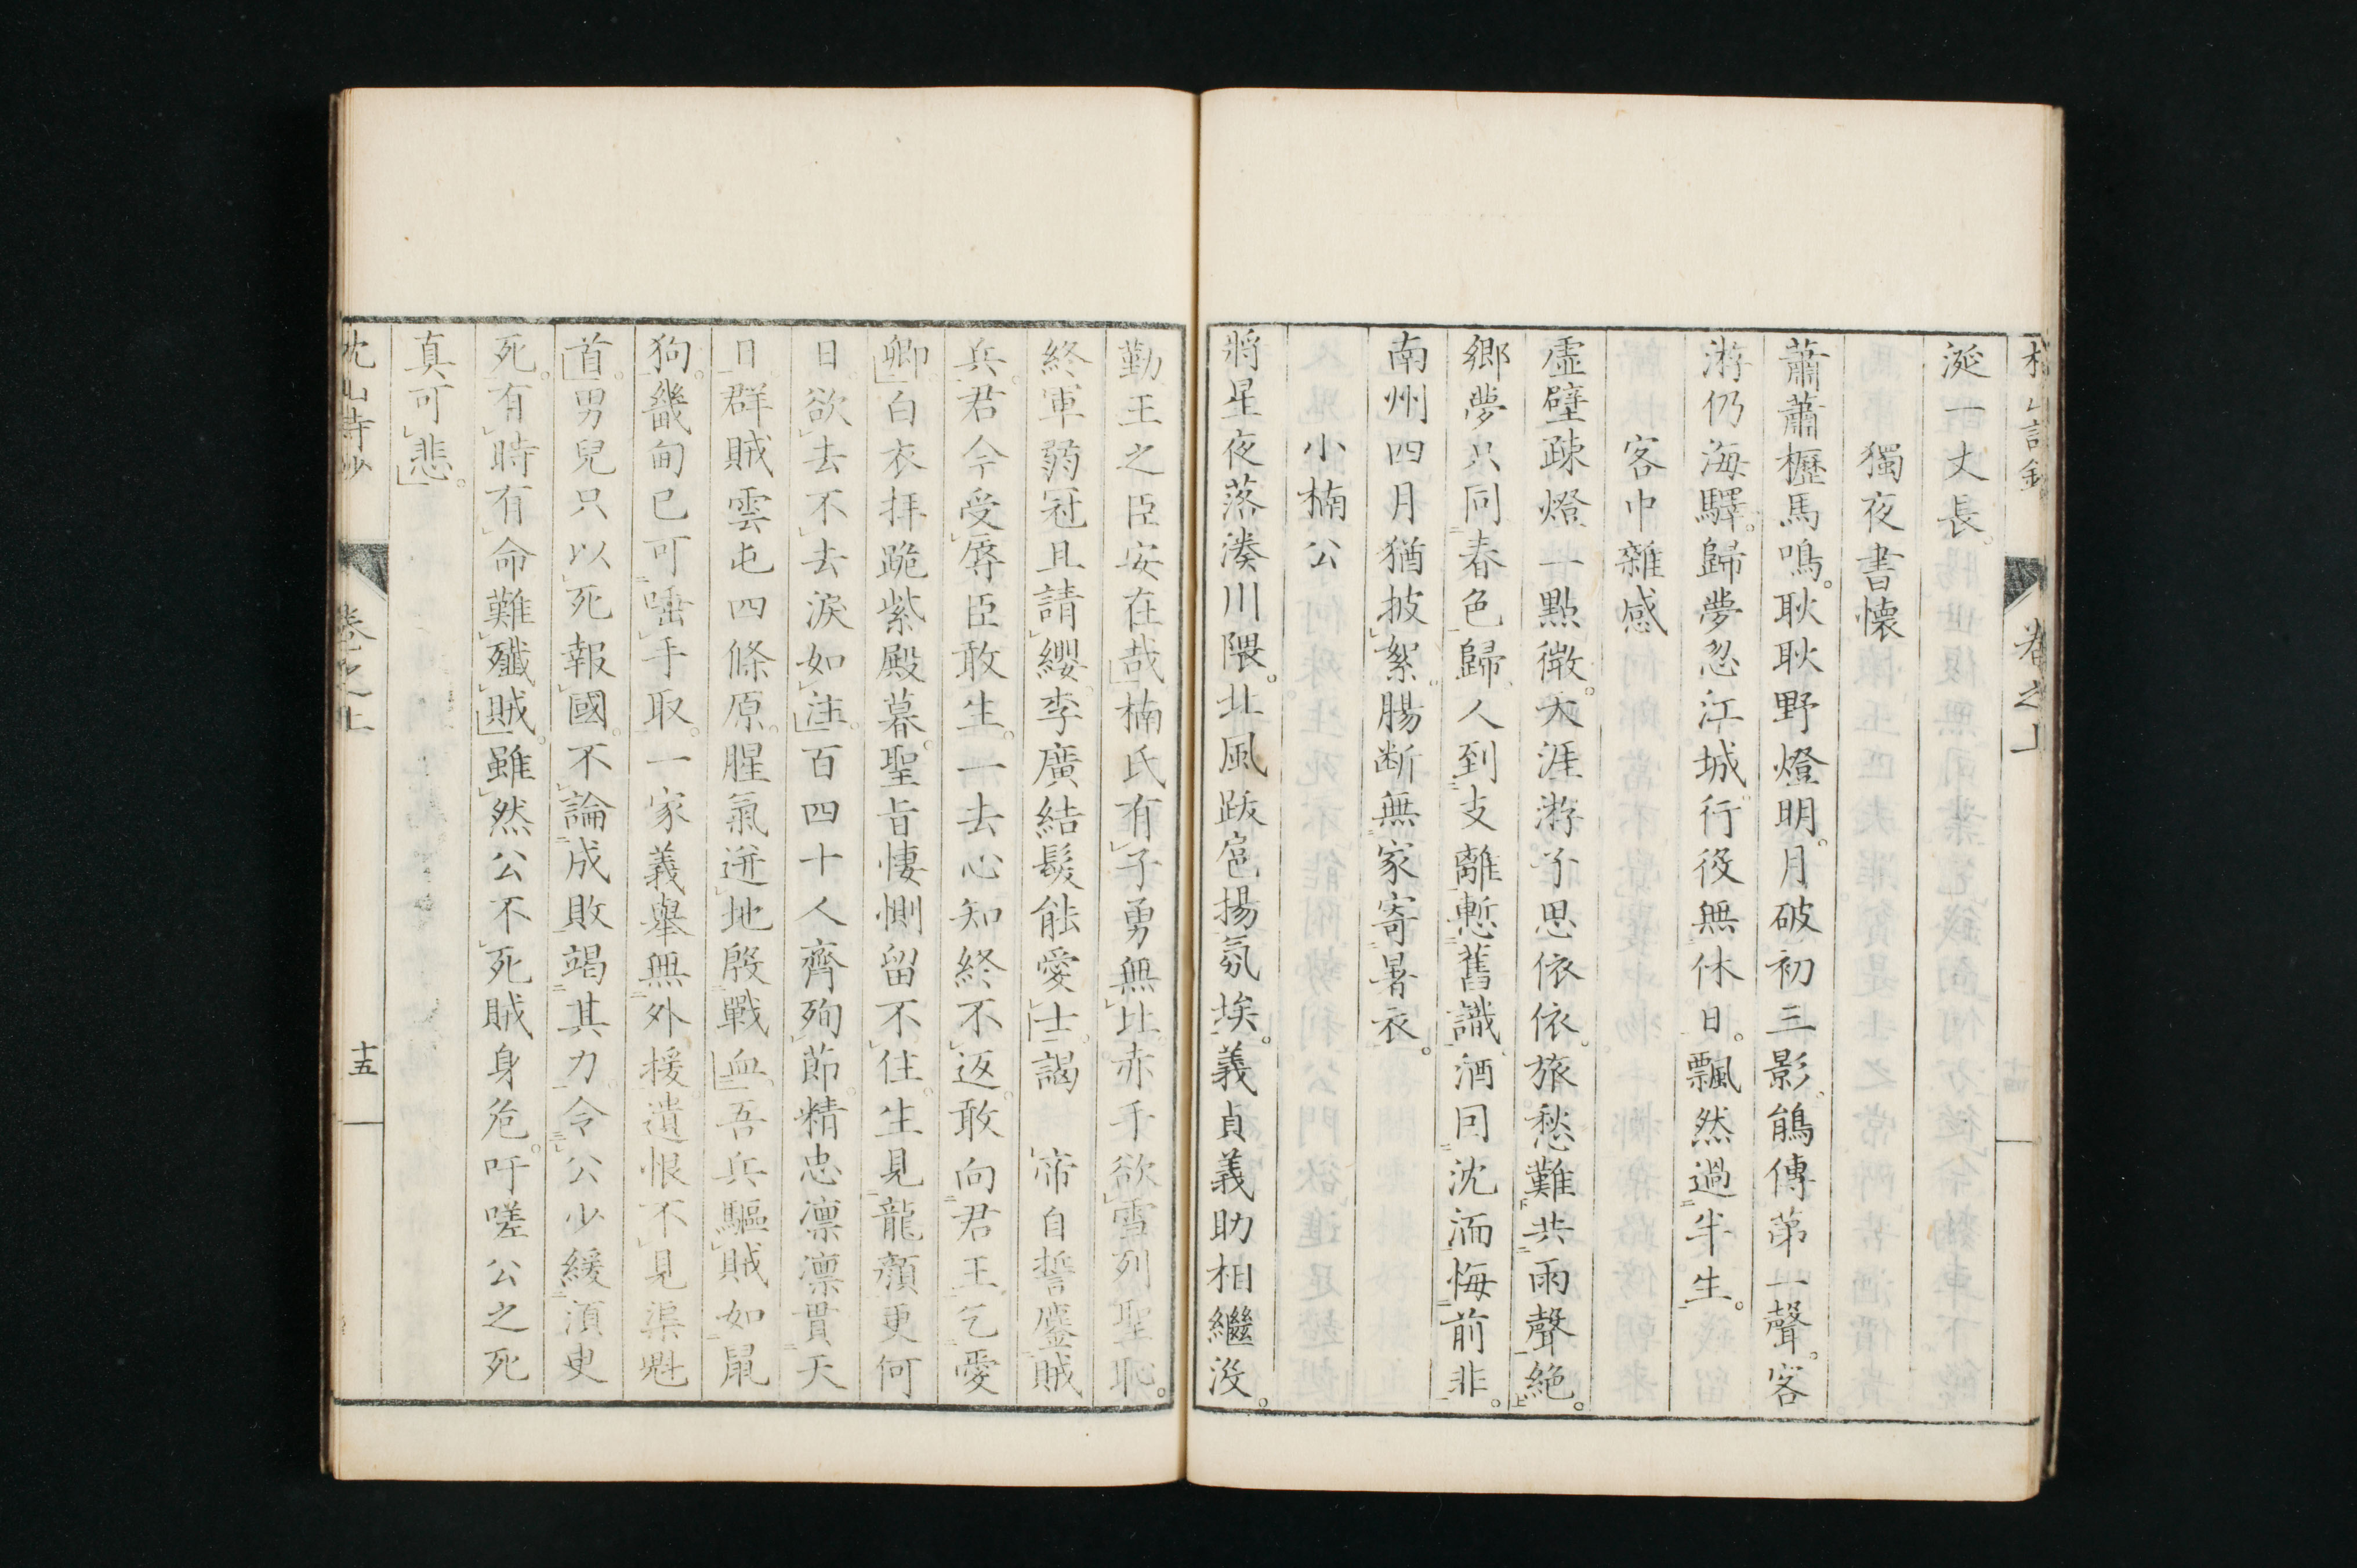 涎一丈長。
獨夜書懷
蕭蕭櫪馬鳴。耿耿野燈明。月破初三影。鵑傳第一聲。客
游仍海驛。歸夢忽江城。行役無休日。飄然過半生。
客中雜感
虛壁疎燈一點微。天涯游子思依依。旅愁難共雨聲絕。
鄉夢只同春色歸。人到支離慙舊識。酒同沈湎悔前非。
南州四月猶披絮。腸断無家寄暑衣。
小楠公
將星夜落湊川隈。北風跋扈揚氛埃。義貞義助相繼沒。
勤王之臣安在哉。楠氏有子勇無比。赤手欲雪列聖恥。
終軍弱冠且請纓。李廣結髮能愛士。謁 帝自誓鏖賊
兵。君今受辱臣敢生。一去心知終不返。敢向君王乞愛
卿。白衣拜跪紫殿暮。聖旨悽惻留不住。生見龍顏更何
日。欲去不去淚如注。百四十人齊殉節。精忠凛凛貫天
日。群賊雲屯四條原。腥氣迸地殷戰血。吾兵驅賊如鼠
狗。畿甸已可唾手取。一家義舉無外援。遺恨不見渠魁
首。男兒只以死報國。不論成敗竭其力。令公少緩須臾
死。有時有命難殲賊。雖然公不死賊身危。吁嗟公之死
真可悲。
卷之上
十五